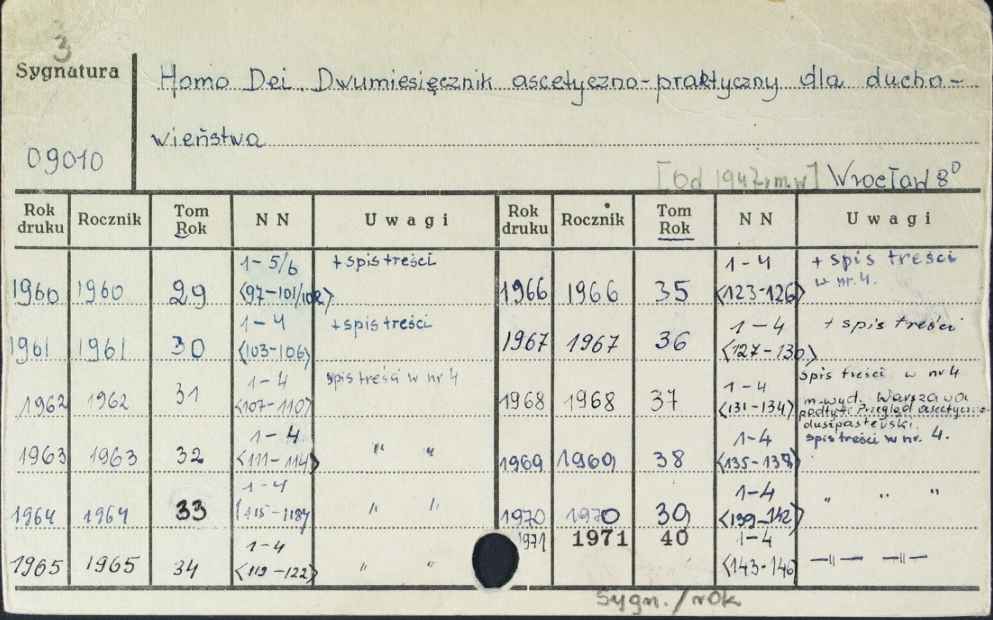 3
Sygnatura
Homo Dei. Dwumiesięcznik ascetyczno-praktyczny dla ducho-
wieństwa
09010
[od 1947 r. m.w] Wrocław 8°
Rok druku Rocznik Tom Rok NN Uwagi Rok druku Rocznik Tom Rok NN Uwagi
1960 1960 29 1-5/6 <97-101/102> + spis treści
1961 1961 30 1-4 <103-106> + spis treści
1962 1962 31 1-4 <107-110> spis treści w nr 4
1963 1963 32 1-4 <111-114> " "
1964 1964 33 1-4 <115-118> " "
1965 1965 34 1-4 <119-122> " "
1966 1966 35 1-4 <123-126> + spis treści w nr. 4.
1967 1967 36 1-4 <127-130> + spis treści
1968 1968 37 1-4 <131-134> spis treści w nr 4
m. wyd. Warszawa
podtyt. Przegląd ascetyczno-
duszpasterski.
1969 1969 38 1-4 <135-138> spis treści w nr. 4.
1970 1970 39 1-4 <139-142> " " "
1971 1971 40 1-4 <143-146 —"— —"—
Sygn./rok